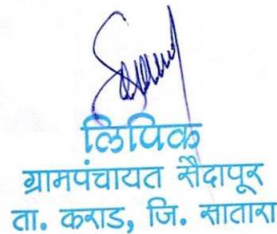 लिपिक
ग्रामपंचायत सैदापूर
ता. कराड, जि. सातारा